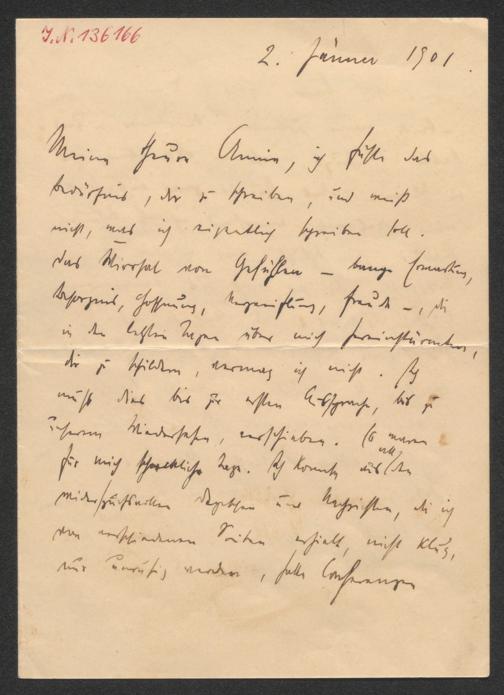 J.N. 136166
2. Jänner 1901.
Meine theure Annie, ich fühle das
Bedürfnis, dir zu schreiben, und weiß
nicht, was ich eigentlich schreiben soll.
Das Wirrsal von Gefühlen – bange Erwartung,
Besorgnis, Hoffnung, Verzweiflung, Freude –, die
in den letzten Tagen über mich hereinstürmten,
dir zu schildern, vermag ich nicht. Ich
muß dies bis zur ersten Aussprache, bis zu
unserem Wiedersehen, verschieben. Es waren
für mich schreckliche Tage. Ich konnte aus all den
widerspruchsvollen Depeschen und Nachrichten, die ich
von verschiedenen Seiten erhielt, nicht klug,
nur unruhig werden, hatte Conferenzen